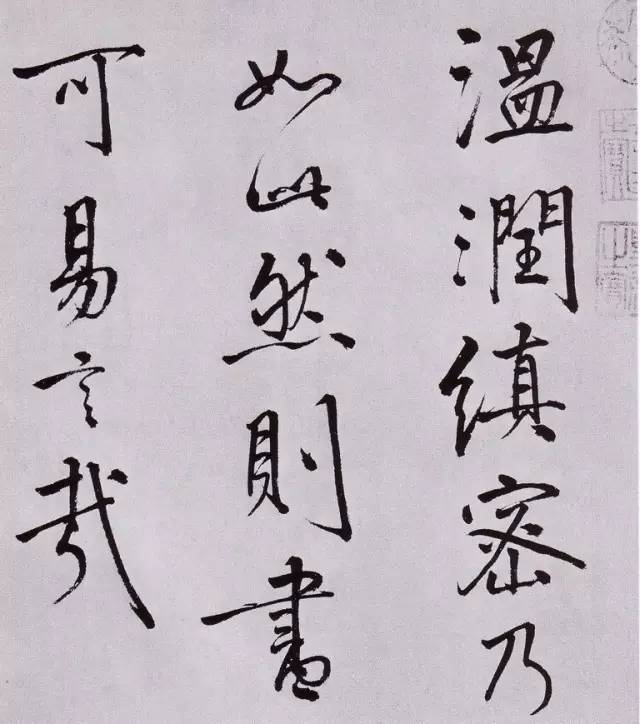 温潤縝密乃
如此然則畫
可易言哉